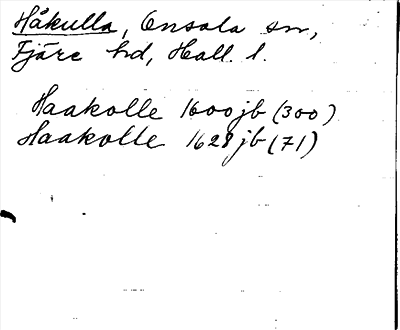 Håkulla, Onsala sn,
Fjäre hd, Hall. l.
Haakolle 1600 jb (300)
Haakolle 1628 jb (71)